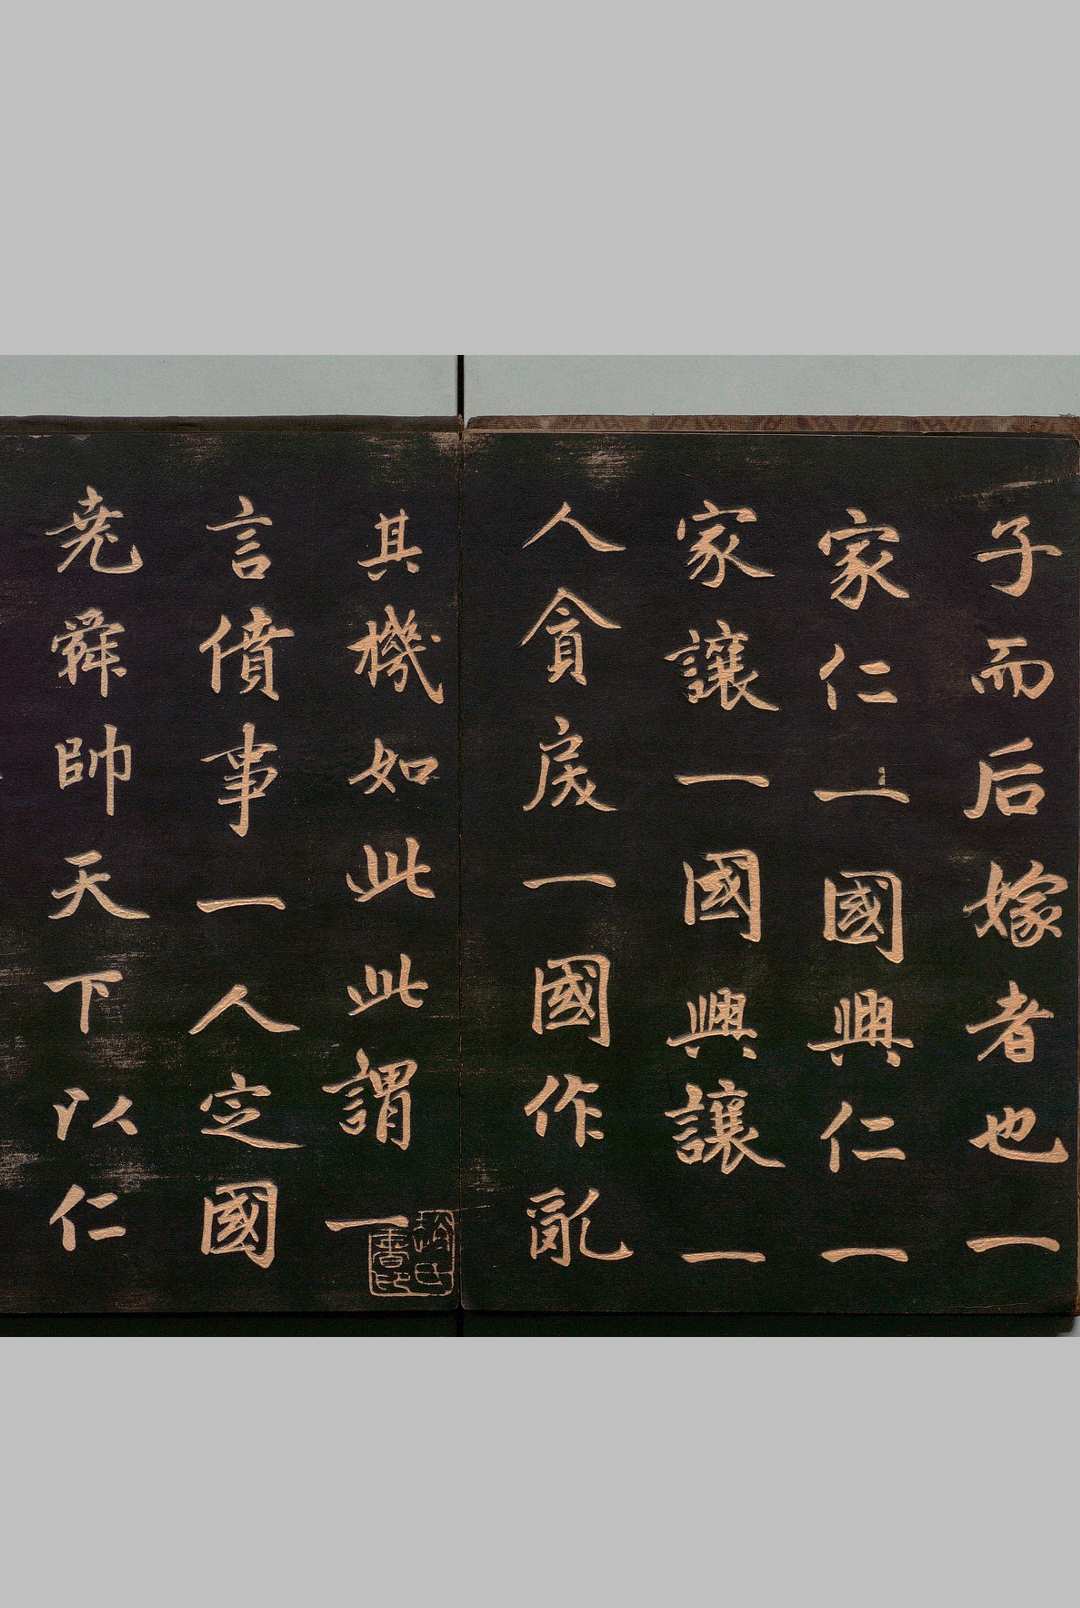 子而后嫁者也一
家仁一國興仁一
家讓一國興讓一
人貪戾一國作亂
其機如此此謂一
言僨事一人定國
堯舜帥天下以仁